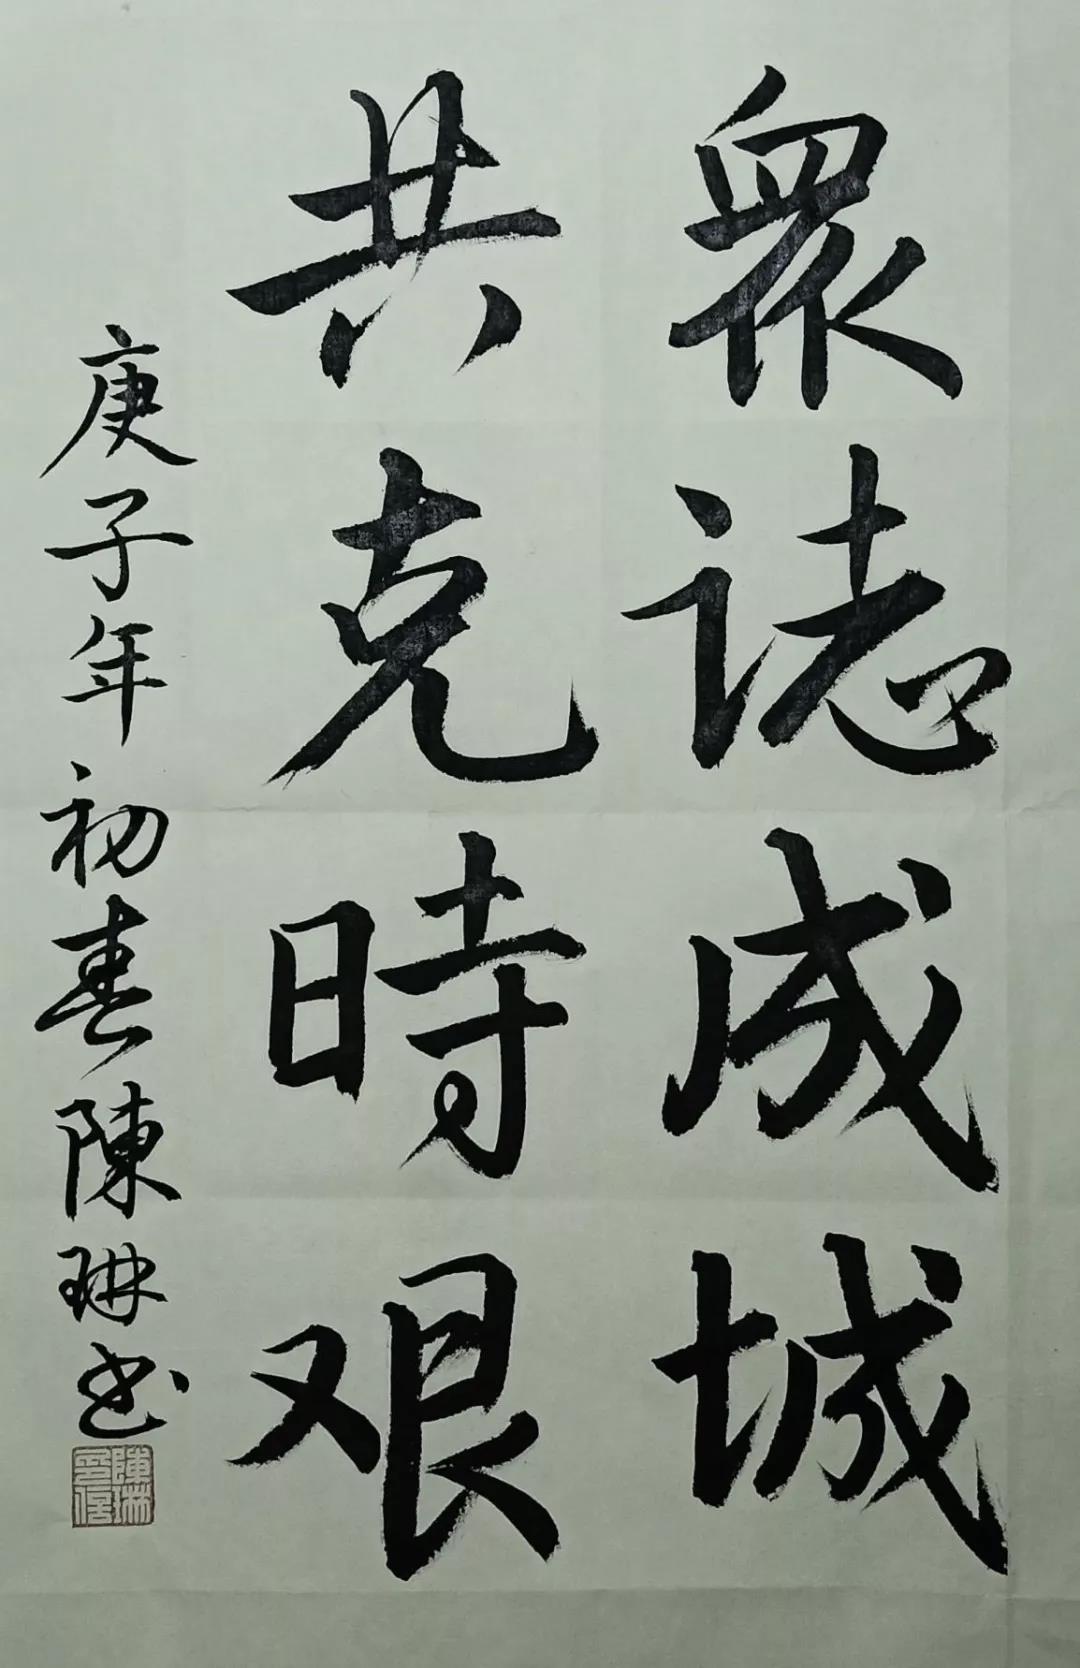 衆誌成城
共克時艰
庚子年初春陳琳书
陳琳印信